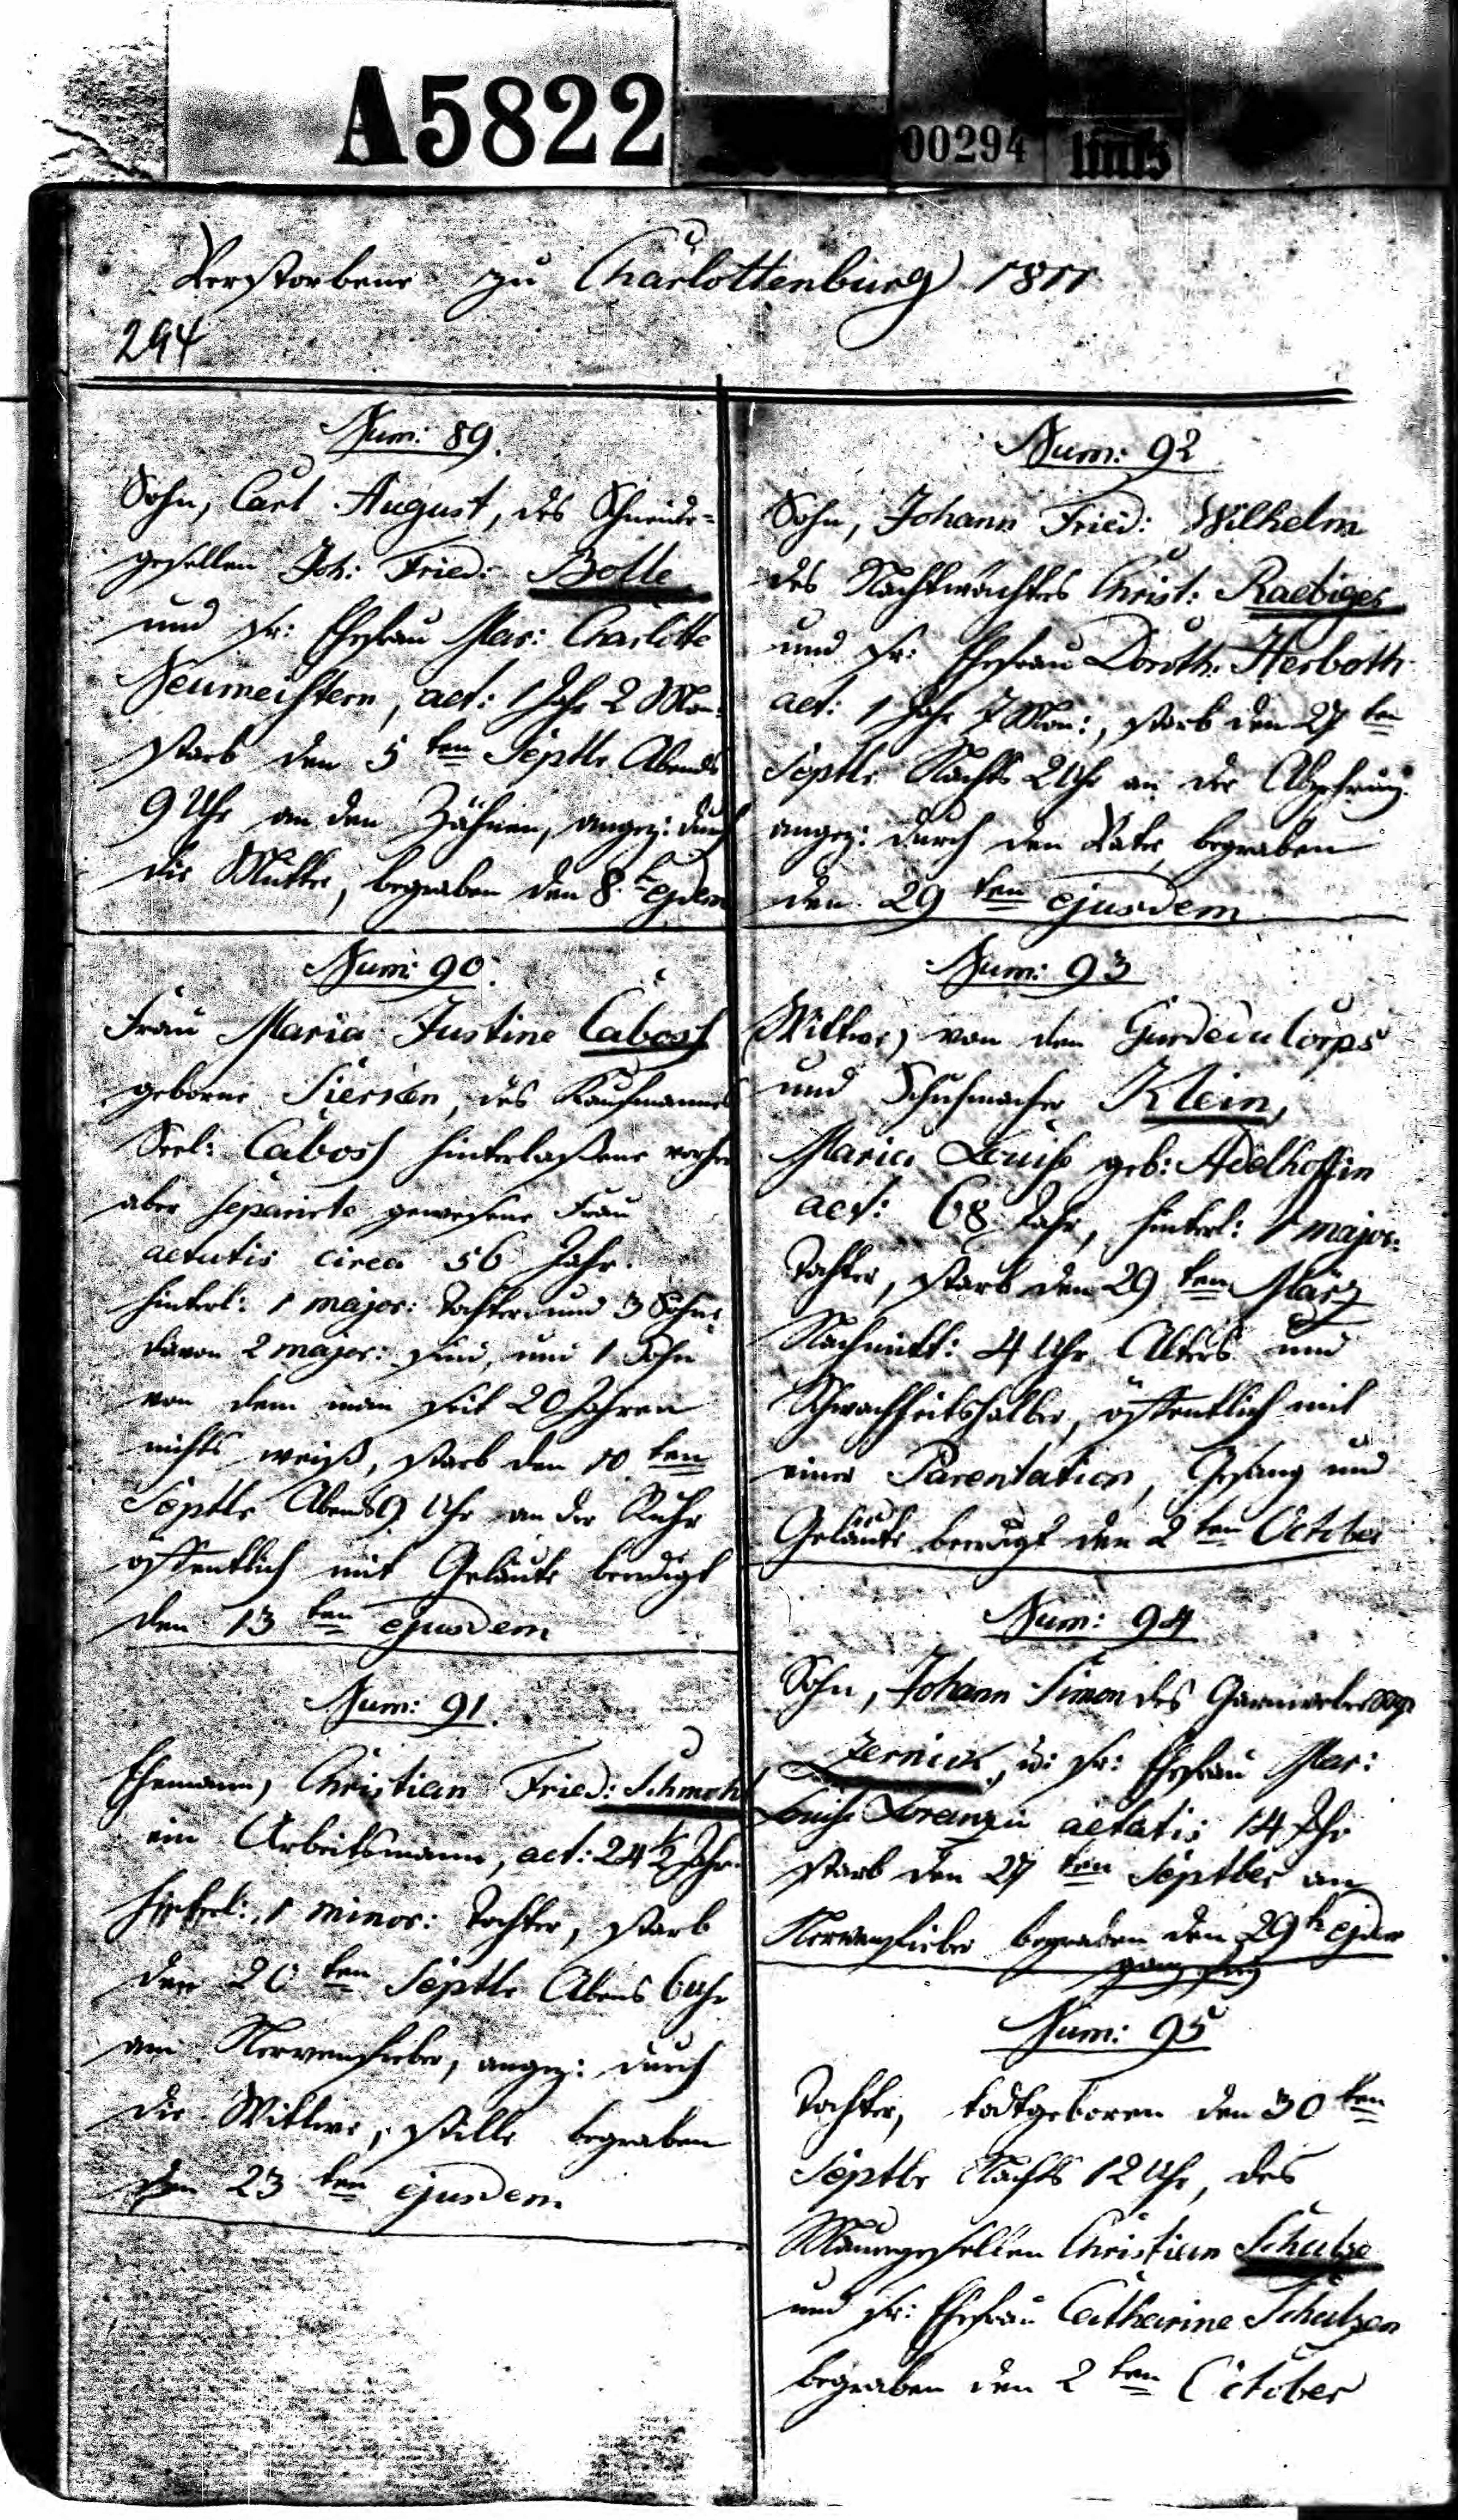 A5822
00294
links
Verstorbene zu Charlottenburg 1811
294
Num: 89.
Sohn, Carl August, des Schneider-
gesellen Joh: Fried: Bolle
und sr: Ehefrau Mar: Charlotte
Neumeistern, aet: 1 Jahr 2 Mon:
starb den 5ten Septbr Abends
9 Uhr an den Zähnen, angez: durch
die Mutter, begraben den 8t ejdem
Num: 90.
Frau Maria Justine Caboss
geborne Siersken, des Kaufmannes
Seel: Caboss hinterlaßene vorher
aber separirte gewesene Frau
aetatis circa 56 Jahr.
hinterl: 1 major: Tochter und 3 Söhne
davon 2 major: sind, und 1 Sohn
von dem man seit 20 Jahren
nichts weiß, starb den 10ten
Septbr Abends 9 Uhr an der Ruhr
öffentlich mit Geläute beerdigt
den 13ten ejusdem
Num: 91.
Ehemann, Christian Fried: Schmohl
ein Arbeitsmann, aet: 24 1/2 Jahr.
hinterl: 1 minor: Tochter, starb
den 20ten Septbr Abens 6 Uhr
am Nervenfieber, angez: durch
die Wittwe, stille begraben
den 23ten ejusdem
Num: 92
Sohn, Johann Fried: Wilhelm
des Nachtwächters Christ: Raebiger
und sr: Ehefrau Doroth: Herboth
aet: 1 Jahr 7 Mon:, starb den 27ten
Septbr Nachts 2 Uhr an der Abzehrung
angez: durch den Vater, begraben
den 29ten ejusdem
Num: 93
Wittwe, von dem Gardedu Corps
und Schuhmacher Klein,
Maria Louise geb: Adelhoffin
aet: 68 Jahr, hinterl: 1 major:
Tochter, starb den 29ten März
Nachmitt: 4 Uhr Alters und
Schwachheitshalber, öffentlich mit
einer Parentation, Gesang und
Geläute beerdigt den 2ten October
Num: 94
Sohn, Johann Simon des Garnweber
Zernick, u: sr: Ehefrau Mar:
Louise Lorenzin aetatis 14 Jhr
starb den 27ten Septber am
Nervenfieber begraben den 29t ejdm
ganz frey
Num: 95
Tochter, todtgeboren den 30ten
Septbr Nachts 12 Uhr, des
Maurergesellen Christian Schulze
und sr: Ehefrau Catharine Schulzen
begraben den 2ten October